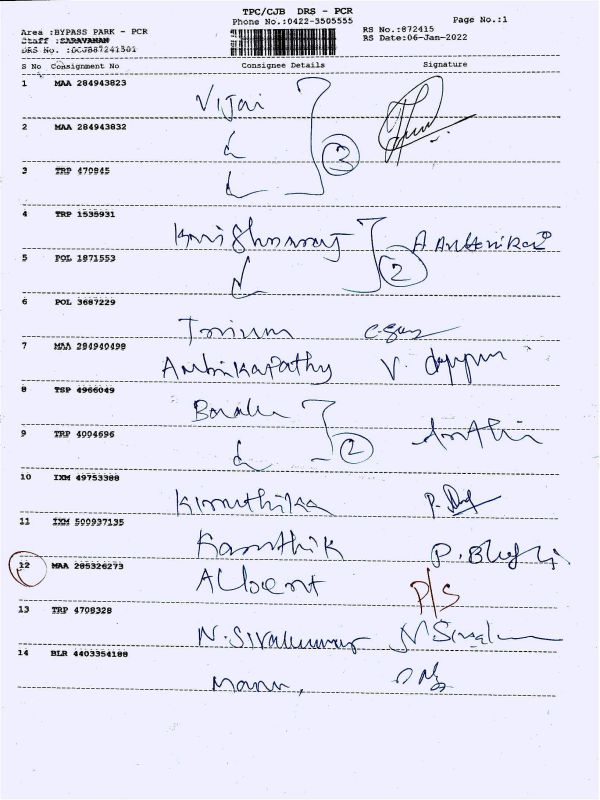 TPC/CJB DRS - PCR
Phone No.:0422-3505555
Page No.:1
Area :BYPASS PARK - PCR
Staff :SARAVANAN
DRS No. :DCJB87241301
RS No.:872415
RS Date:06-Jan-2022
S No Consignment No Consignee Details Signature
1 MAA 284943823
Vijai
2 MAA 284943832
3
3 TRP 470845
4 TRP 1535931
Krishnaraj
5 POL 1871553
2
6 POL 3687229
7 MAA 284940498
Ambikapathy V.
8 TSP 4966049
9 TRP 4004696
2
10 IXM 49753388
Kiruthika P.
11 IXM 500937135
Karthik P.
12 MAA 285326273
Albert P/S
13 TRP 4708328
N. Sivakumar
14 BLR 4403354188